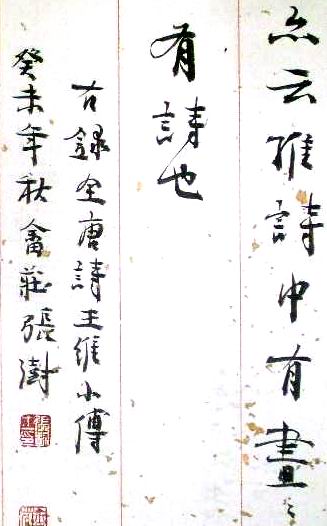 亦云維詩中有畫〻
有詩也
右錄全唐詩王維小傳
癸未年秋莊張澍